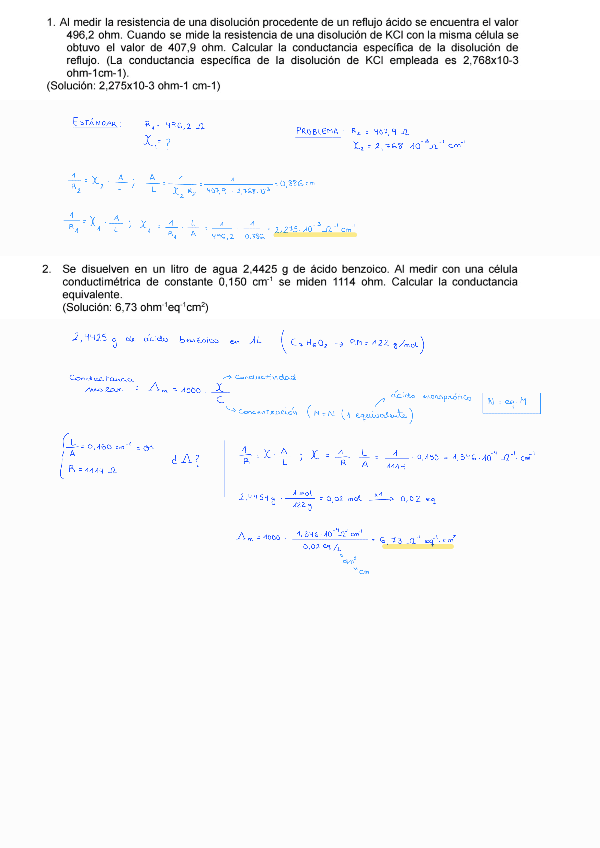 1. Al medir la resistencia de una disolución procedente de un reflujo ácido se encuentra el valor
496,2 ohm. Cuando se mide la resistencia de una disolución de KCl con la misma célula se
obtuvo el valor de 407,9 ohm. Calcular la conductancia específica de la disolución de
reflujo. (La conductancia específica de la disolución de KCl empleada es 2,768x10-3
ohm-1cm-1).
(Solución: 2,275x10-3 ohm-1 cm-1)
ESTÁNDAR: R₁ = 496,2 Ω
χ₁ = ?
PROBLEMA R₂ = 407,9 Ω
χ₂ = 2,768 · 10⁻³ Ω⁻¹ cm⁻¹
1/R₂ = χ₂ · A/L ; A/L = 1/(χ₂ R₂) = 1/(407,9 · 2,768·10⁻³) = 0,886 cm
1/R₁ = χ₁ · A/L ; χ₁ = 1/R₁ · L/A = 1/496,2 · 1/0,886 = 2,275 · 10⁻³ Ω⁻¹ cm⁻¹
2. Se disuelven en un litro de agua 2,4425 g de ácido benzoico. Al medir con una célula
conductimétrica de constante 0,150 cm⁻¹ se miden 1114 ohm. Calcular la conductancia
equivalente.
(Solución: 6,73 ohm⁻¹eq⁻¹cm²)
2,4425 g de ácido benzoico en 1L (C₇H₆O₂ → PM = 122 g/mol)
Conductancia molar : Λm = 1000 · χ/C
→ Conductividad
→ Concentración (M = N (1 equivalente)
ácido monoprótico
N = eq · M
L/A = 0,150 cm⁻¹ = θ
R = 1114 Ω
¿Λ?
1/R = χ · A/L ; χ = 1/R · L/A = 1/1114 · 0,150 = 1,346 · 10⁻⁴ Ω⁻¹ cm⁻¹
2,4425 g · 1 mol/122 g = 0,02 mol → 0,02 eq
Λm = 1000 · 1,346 · 10⁻⁴ Ω⁻¹ cm⁻¹ / 0,02 eq/L = 6,73 Ω⁻¹ eq⁻¹ · cm²